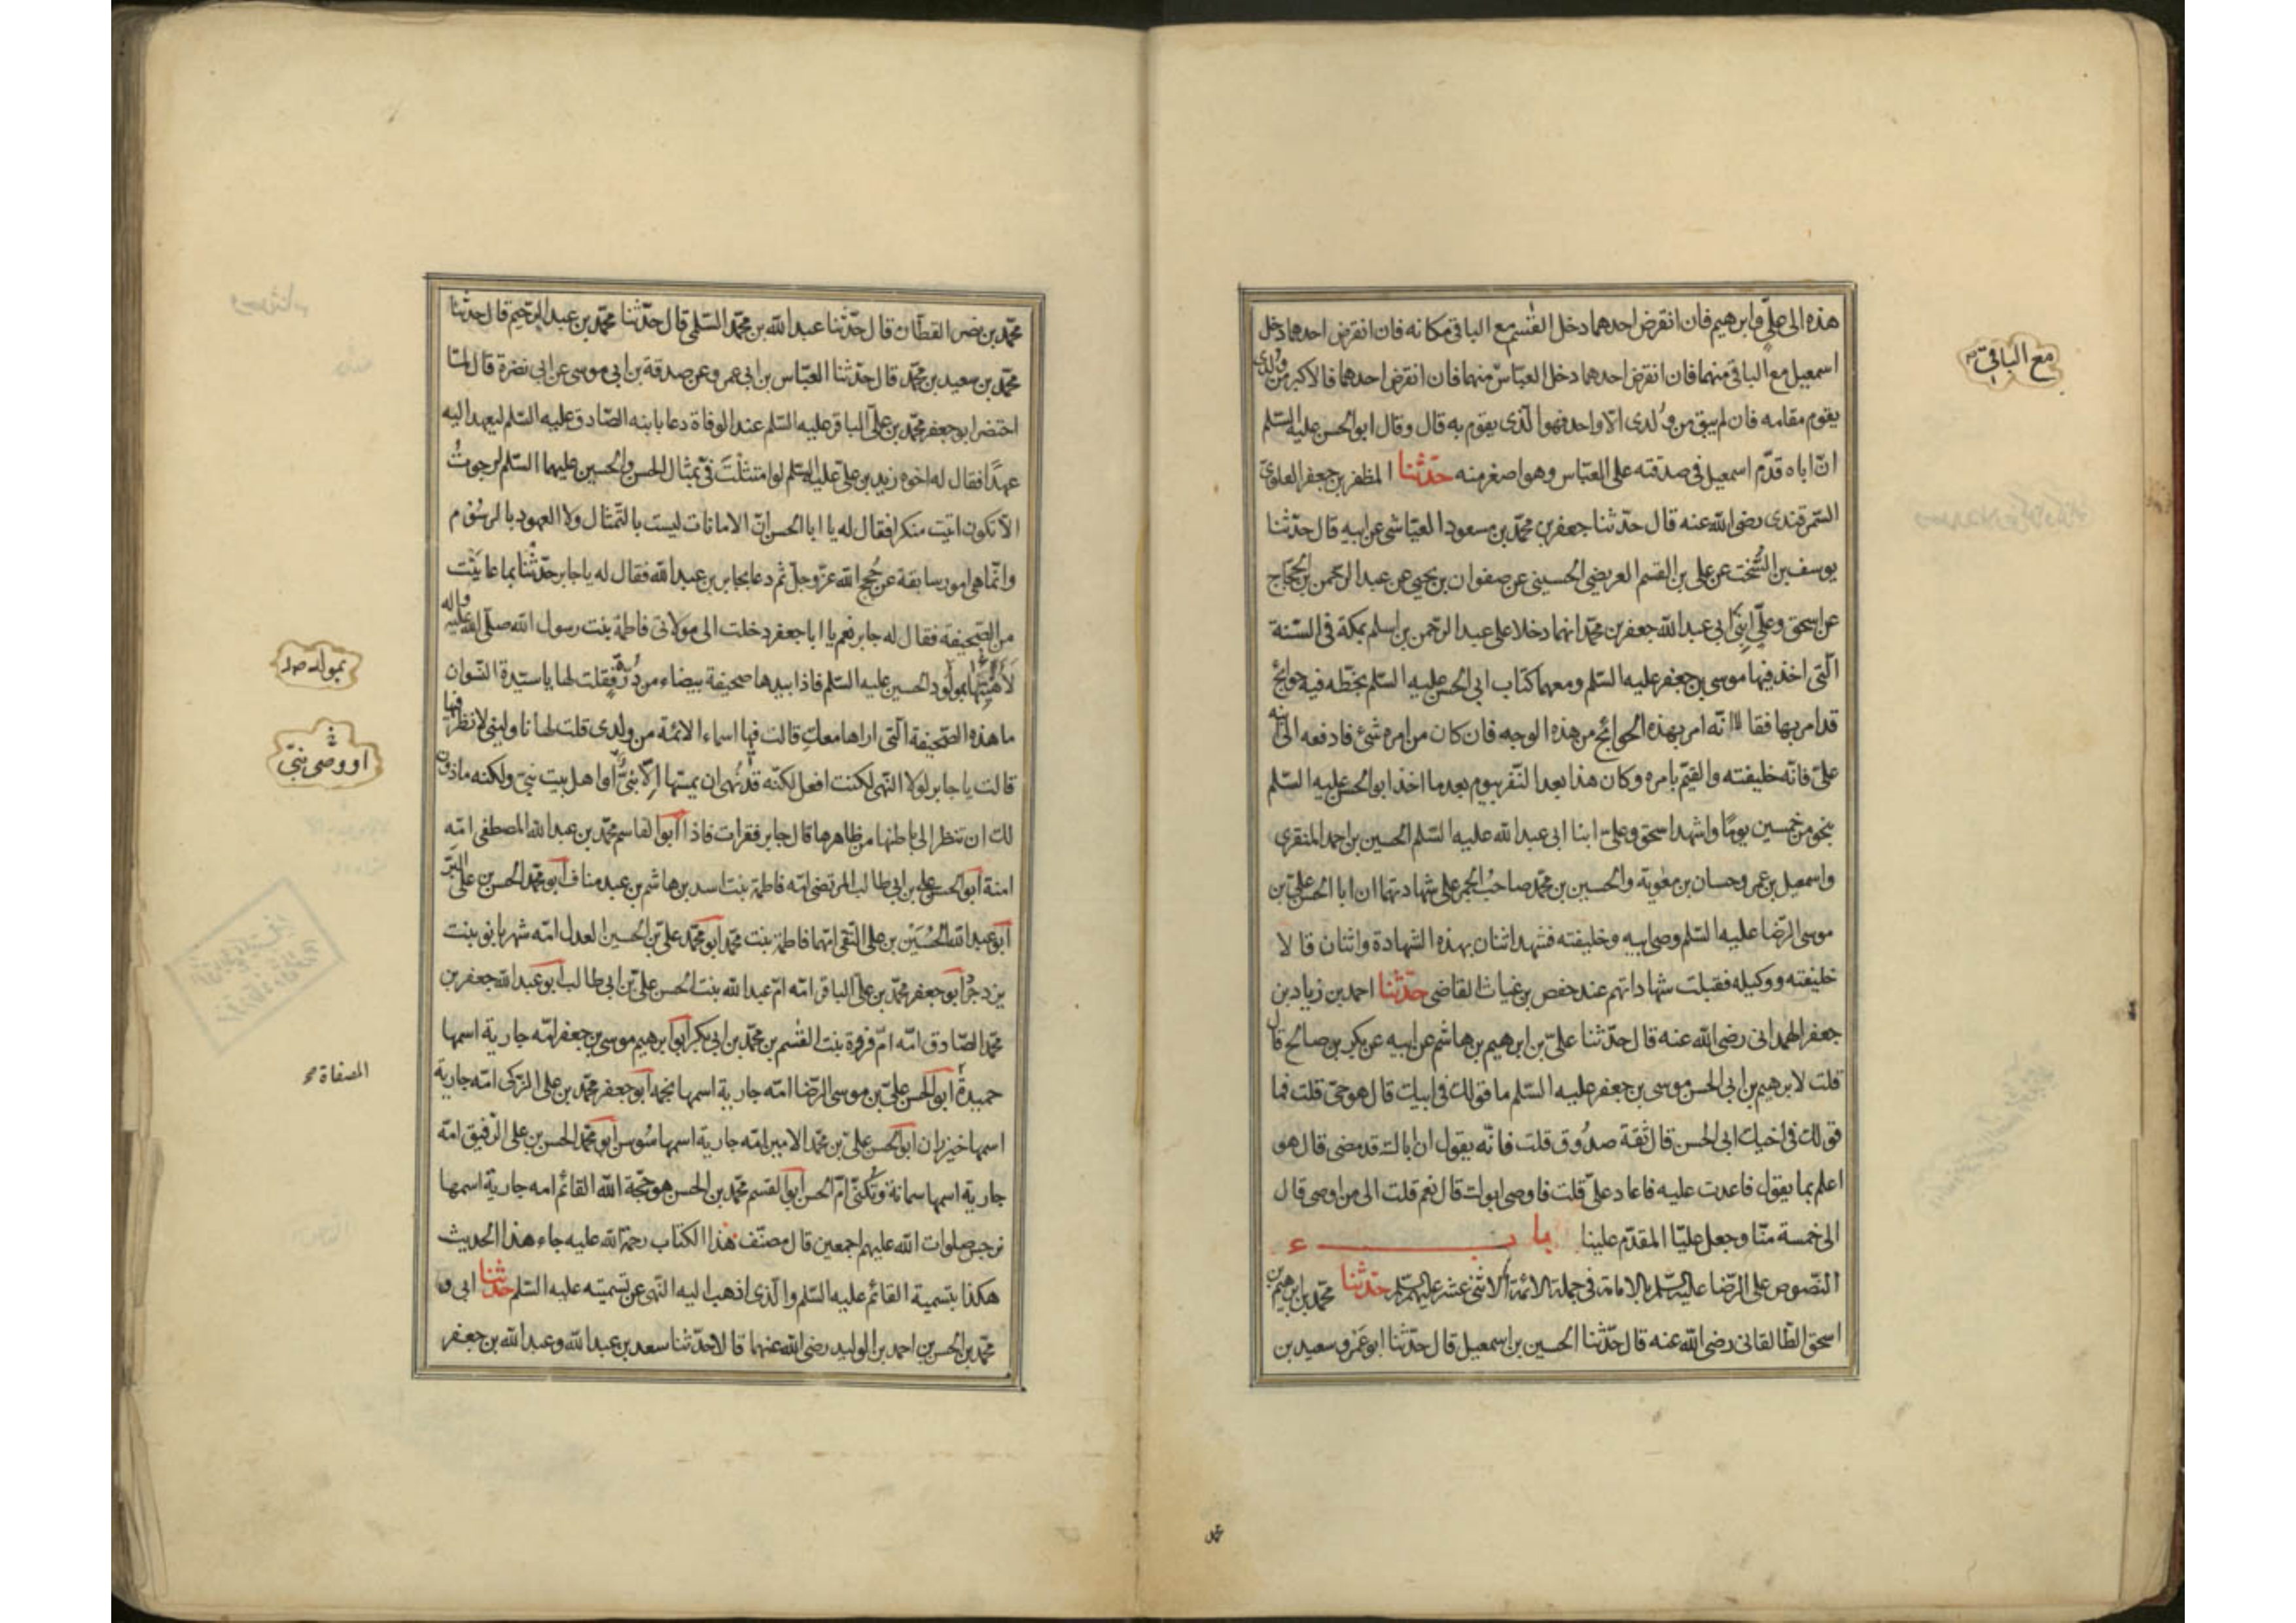 هذه الى علىّ وابرهيم فان انقرض احدهما دخل القٰسم مع الباقى مكانه فان انقرض احدهما دخل
اسمعيل مع الباقى منهما فان انقرض احدهما دخل العبّاس منهما فان انقرض احدهما فالاكبر من وُلدى
يقوم مقامه فان لم يبق من وُلدى الّا واحد فهو الّذى يقوم به قال وقال ابو الحسن عليه السّلم
انّ اباه قدّم اسمعيل فى صدقته على العبّاس وهو اصغر منه حدّثنا المظفر بن جعفر العلوىّ
السّمرقندى رضى الله عنه قال حدّثنا جعفر بن محمّد بن مسعود العيّاشى عن ابيه قال حدّثنا
يوسف بن السُّخت عن على بن القسم العريضى الحسينى عن صفوان بن يحيى عن عبد الرّحمن بن الحجّاج
عن اسحق وعلىّ ابنَى ابى عبد الله جعفر بن محمّد انهما دخلا على عبد الرّحمن بن اسلم بمكة فى السّنة
الّتى اخذ فيها موسى بن جعفر عليه السّلم ومعهما كتاب ابى الحسن عليه السّلم بخطّه فيه حوائج
قد امر بها فقالا انّه امر بهذه الحوائج من هذه الوجه فان كان من امره شئ فادفعه الى ابنه
علىّ فانّه خليفته والقيّم بامره وكان هذا بعد النّفر بيوم بعد ما اخذ ابو الحسن عليه السّلم
بنحو من خمسين يومًا واشهد اسحق وعلىّ ابنا ابى عبد الله عليه السّلم الحسين بن احمد المنقرى
واسمعيل بن عمر وحسان بن معٰوية والحسين بن محمّد صاحبُ الختم على شهادتهما ان ابا الحسن علىّ بن
موسى الرّضا عليه السّلم وصى ابيه وخليفته فشهد اثنان بهذه الشهادة واثنان قالا
خليفته ووكيله فقبلت شهاداتهم عند حفص بن غياث القاضى حدّثنا احمد بن زياد بن
جعفر الهمدانى رضى الله عنه قال حدّثنا علىّ بن ابرهيم بن هاشم عن ابيه عن بكر بن صالح قال
قلت لابرهيم بن ابى الحسن موسى بن جعفر عليه السّلم ما قولك فى ابيك قال هو حىّ قلت فما
قولك فى اخيك ابى الحسن قال ثقة صدُوق قلت فانّه يقول ان اباك قد مضى قال هو
اعلم بما يقول فاعدت عليه فاعاد علىّ قلت فاوصى ابوك قال نعم قلت الى من اوصى قال
الى خمسة منّا وجعل عليّا المقدّم علينا باب
النّصوص على الرّضا عليه السّلم بالامامة فى جملة الائمّة الاثنى عشر عليهم السّلم حدّثنا محمّد بن ابرهيم بن
اسحق الطّالقانى رضى الله عنه قال حدّثنا الحسين بن اسمعيل قال حدّثنا ابو عَمرو سعيد بن
مع الباقىّ
محمّد
محمّد بن نصر القطّان قال حدّثنا عبد الله بن محمّد السّلمى قال حدّثنا محمّد بن عبد الرّحيم قال حدّثنا
محمّد بن سعيد بن محمّد قال حدّثنا العبّاس بن ابى عمرو عن صدقة بن ابى موسى عن ابى نضرة قال لمّا
احتضر ابو جعفر محمّد بن علىّ الباقر عليه السّلم عند الوفاة دعا بابنه الصّادق عليه السّلم ليعهد اليه
عهدًا فقال له اخوه زيد بن علىّ عليه السّلم لو امتثلْتَ فىّ بمثال الحسن والحسين عليهما السّلم لرجوتُ
الّا تكون اتيت منكرا فقال له يا ابا الحسن انّ الامانات ليست بالتّمثال ولا العهود بالرسُوم
وانّما هى امور سابقة عن حُجج الله عزّ وجلّ ثم دعا بجابر بن عبد الله فقال له يا جابر حدّثنا بما عاينت
من الصّحيفة فقال له جابر نعم يا ابا جعفر دخلت الى مولاتى فاطمة بنت رسول الله صلّى الله عليه واله
لأهنّئها بمولُود الحسين عليه السّلم فاذا بيدها صحيفة بيضاء من دُرّة فقلت لها يا سيّدة النّسوان
ما هذه الصّحيفة الّتى اراها معكِ قالت فيها اسماء الائمّة من ولدى قلت لها ناولينى لانظر فيها
قالت يا جابر لولا النّهى لكنت افعل لكنّه قد نُهى ان يمسّها الّا نبىّ او اهل بيت نبىّ ولكنه ماذون
لك ان تنظر الى باطنها من ظاهرها قال جابر فقرات فاذا ابو القاسم محمّد بن عبد الله المصطفى امّه
امنة ابو الحسن على بن ابى طالب المرتضى امّه فاطمة بنت اسد بن هاشم بن عبد مناف ابو محمّد الحسن بن على البرّ
ابو عبد الله الحُسَيْن بن على التّقى امّهما فاطمة بنت محمّد ابو محمّد علىّ بن الحسين العدل امّه شهربانو بنت
يزدجرُد ابو جعفر محمّد بن علىّ الباقر امّه امّ عبد الله بنت الحسن علىّ بن ابى طالب ابو عبد الله جعفر بن
محمّد الصّادق امّه امّ فروة بنت القٰسم بن محمّد بن ابى بكر ابو ابرهيم موسى بن جعفر امّه جارية اسمها
حميدةُ ابو الحسن علىّ بن موسى الرّضا امّه جارية اسمها نجمه ابو جعفر محمّد بن على الزّكى امّه جارية
اسمها خيزران ابو الحسن علىّ بن محمّد الامين امّه جارية اسمها سُوسن ابو محمّد الحسن بن على الرّفيق امّه
جارية اسمها سمانة وتُكنّى امّ الحسن ابو القسم محمّد بن الحسن هو حجّة الله القائم امه جارية اسمها
نرجس صلوات الله عليهم اجمعين قال مصنّف هذا الكتاب رحمة الله عليه جاء هذا الحديث
هكذا بتسمية القائم عليه السّلم والّذى اذهب اليه النّهى عن تسميته عليه السّلم حدّثنا ابى و
محمّد بن الحسن بن احمد بن الوليد رضى الله عنهما قالا حدّثنا سعد بن عبد الله وعبد الله بن جعفر
او وصى نبىّ
المصفاة